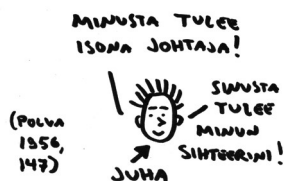 MINUSTA TULEE
ISONA JOHTAJA!
SINUSTA
TULEE
MINUN
SIHTEERINI!
(POLVA
1956,
147)
JUHA